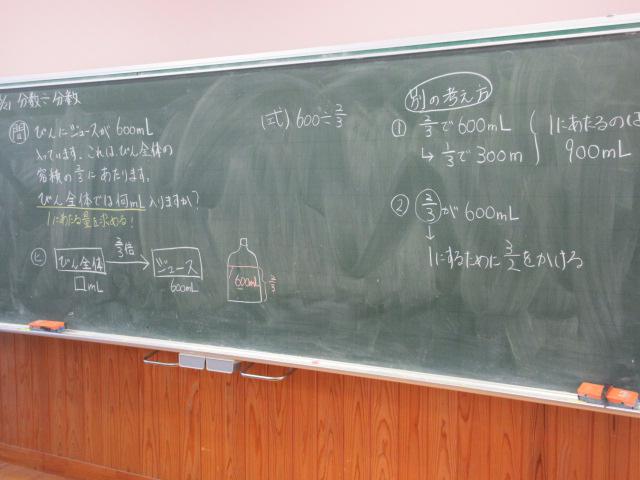 分数÷分数
問 びんにジュースが600mL
入っています。これは、びん全体の
容積の2/3にあたります。
びん全体では何mL入りますか?
1にあたる量を求める!
ヒ びん全体 2/3倍 → ジュース
□mL 600mL
600mL 2/3
(式) 600÷2/3
別の考え方
① 2/3で600mL
↳ 1/3で300m
1にあたるのは
900mL
② 2/3が600mL
↓
1にするために3/2をかける